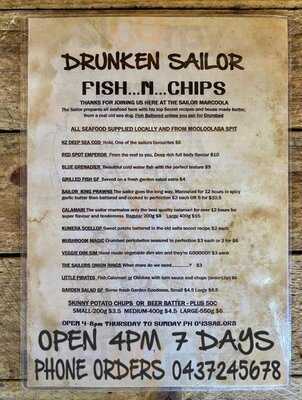 DRUNKEN SAILOR
FISH...N...CHIPS
THANKS FOR JOINING US HERE AT THE SAILOR MARCOOLA
The Sailor prepares all seafood here with his top secret recipes and house made batter,
from a real old sea dog. Fish Battered unless you ask for Crumbed
ALL SEAFOOD SUPPLIED LOCALLY AND FROM MOOLOOLABA SPIT
NZ DEEP SEA COD Hoki, One of the sailors favourites $6
RED SPOT EMPEROR From the reef to you, Deep rich full body flavor $10
BLUE GRENADIER Beautiful cold water fish with the perfect texture $9
GRILLED FISH GF Served on a fresh garden salad extra $4
SAILOR KING PRAWNS The sailor goes the long way, Marinated for 12 hours in spicy
garlic butter then battered and cooked to perfection $3 each OR 5 for
CALAMARI The sailor marinates only the best quality battered for over 12 hours for
super flavour and tenderness Regular 200g $8 Large 400g $15
KUMERA SCOLLOP Sweet potato battered in the old salts secret recipe $2 each
MUSHROOM MAGIC Crumbed portobellos seasoned to perfection $3 each or 2 for $5
VEGGIE DIM SIM Hand made vegetable dim sim and they're GOOOOD! $3 each
THE SAILORS ONION RINGS What more do we need
LITTLE PIRATES Fish, Calamari or Chicken with tom sauce and chips
GARDEN SALAD GF Some fresh Garden Goodness. Small $4.5 Large
SKINNY POTATO CHIPS OR BEER BATTER - PLUS 50C
SMALL-200g $3.5 MEDIUM-400g $4.5 LARGE-550g $6
OPEN 4-8pm THURSDAY TO SUNDAY PH
OPEN 4PM 7 DAYS
PHONE ORDERS 0437245678